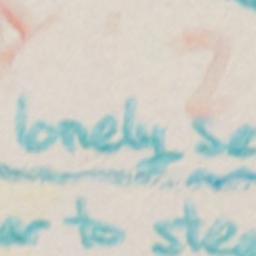 lonely se
ar to stee